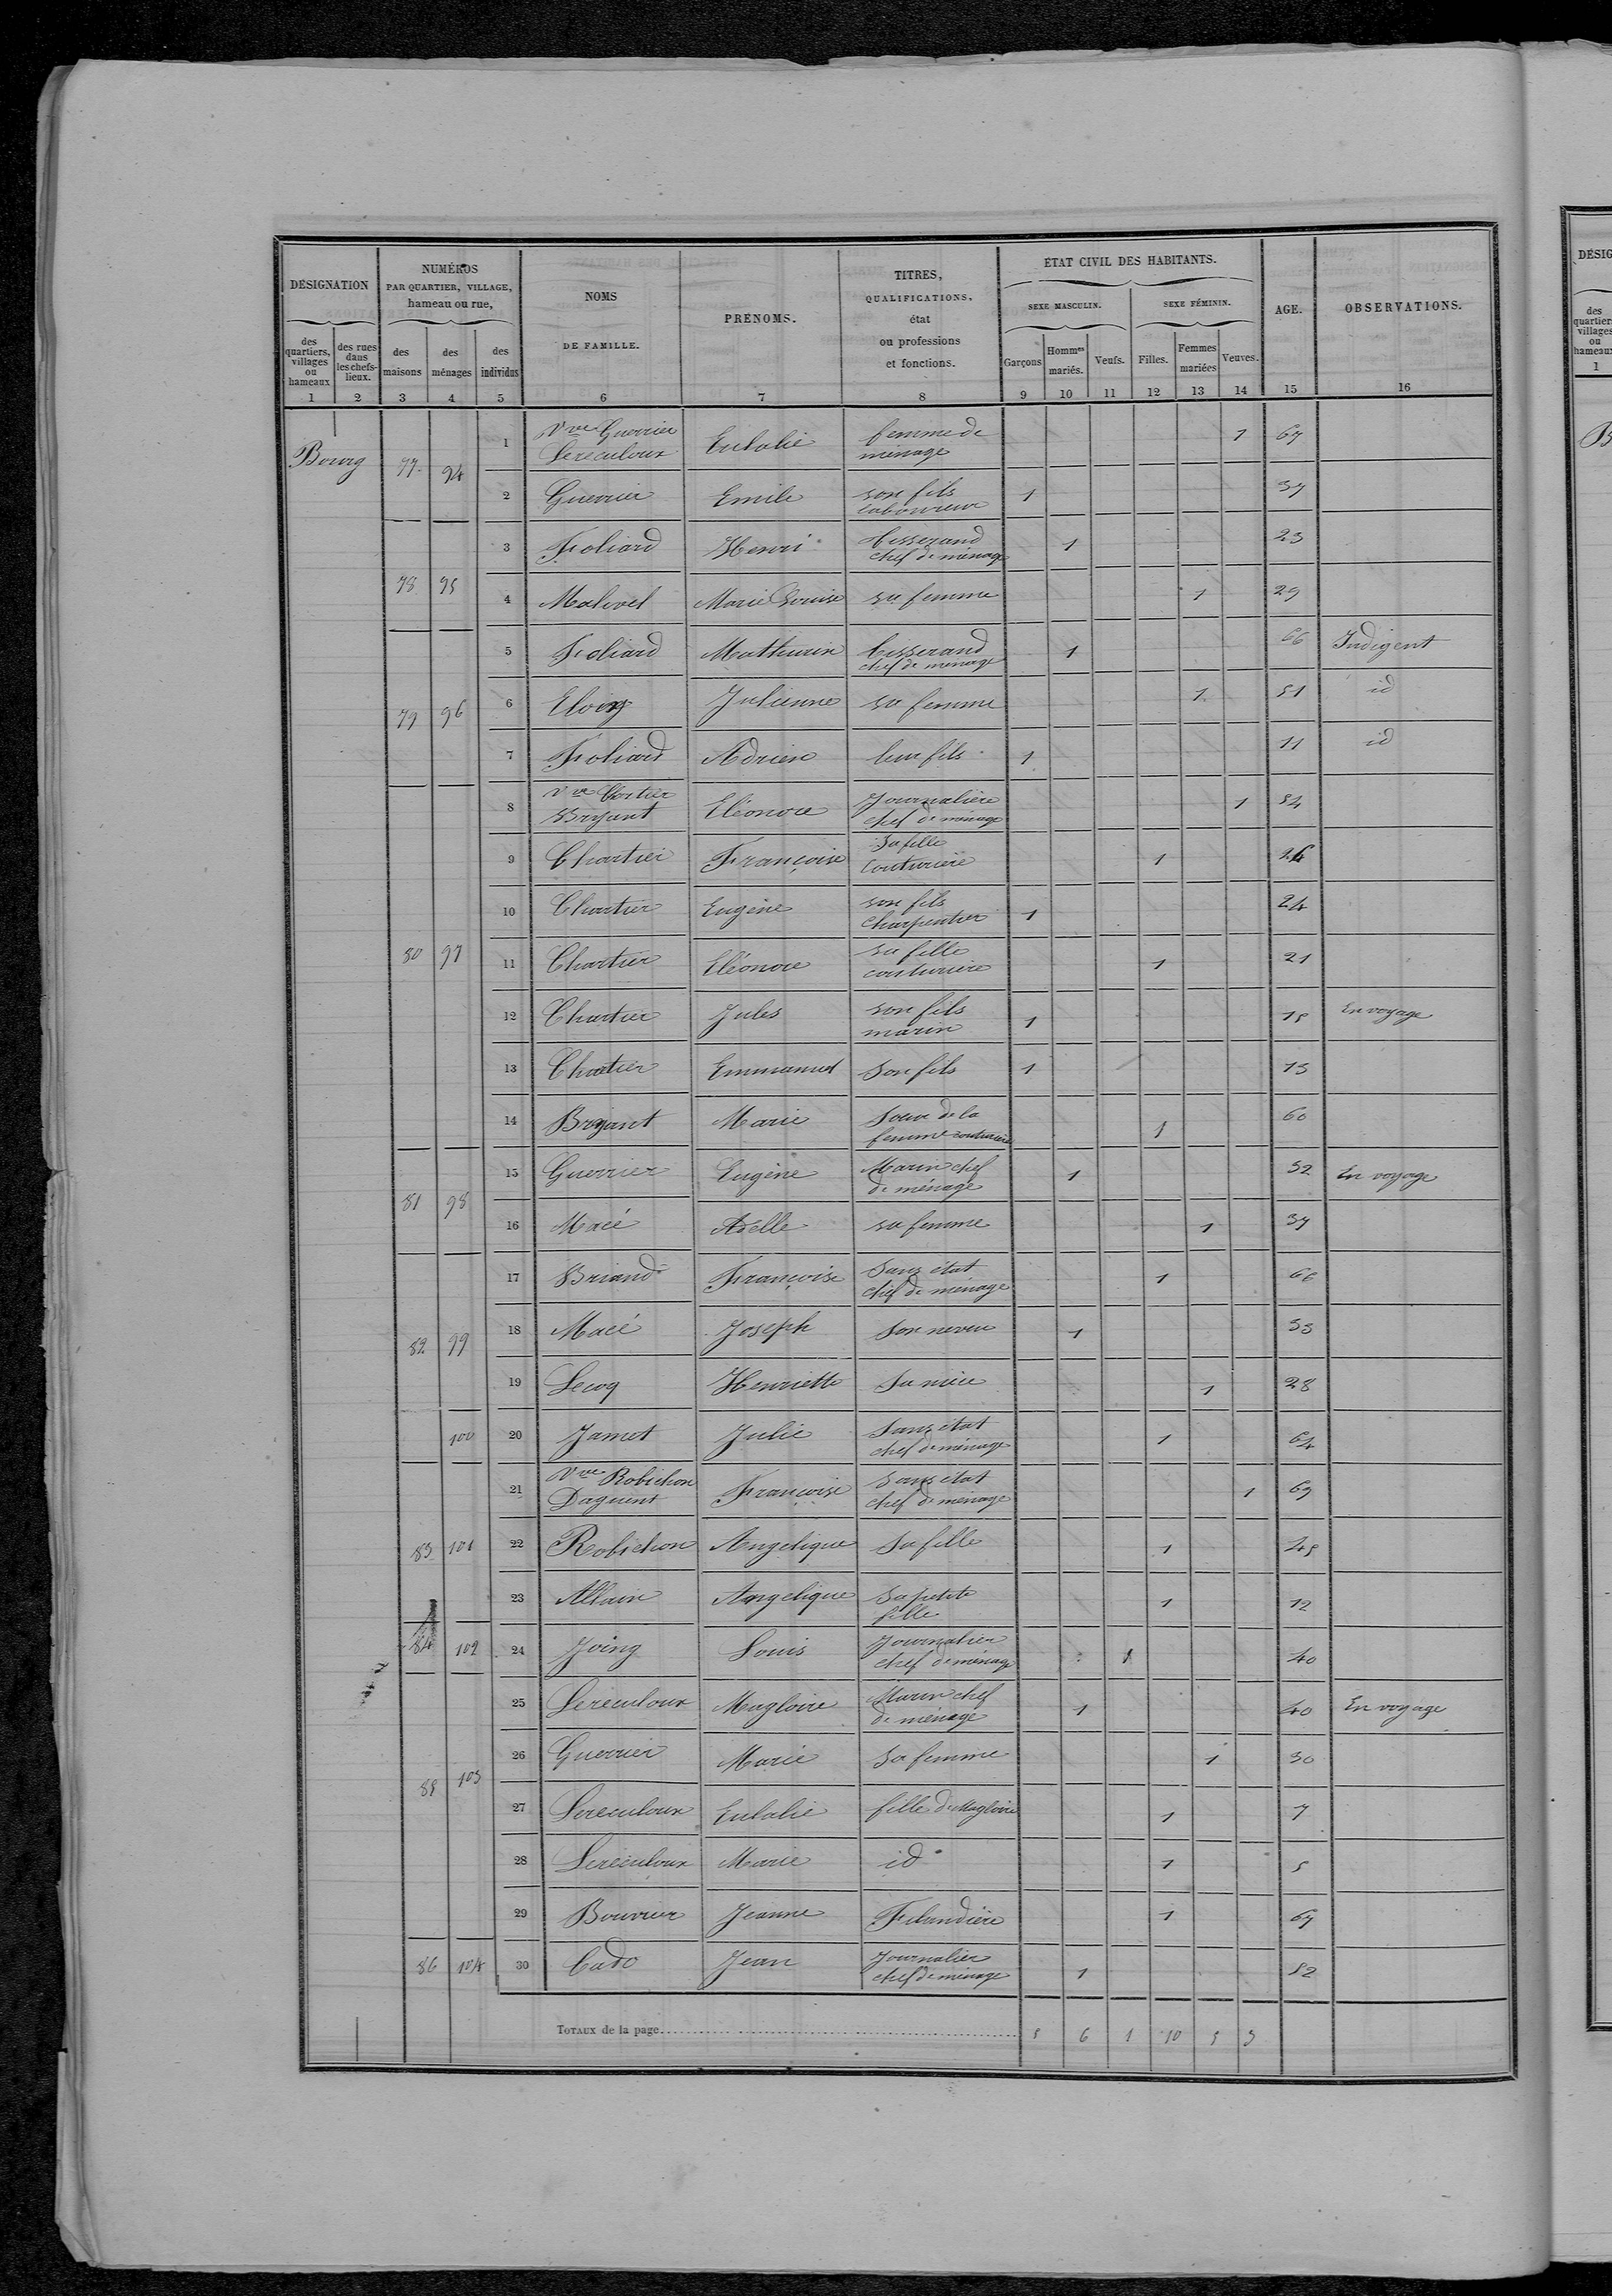 DÉSIGNATION
NUMÉROS
PAR QUARTIER, VILLAGE,
hameau ou rue,
NOMS
DE FAMILLE.
PRENOMS.
TITRES,
QUALIFICATIONS,
état
ou professions
et fonctions.
ÉTAT CIVIL DES HABITANTS.
SEXE MASCULIN.
SEXE FÉMININ.
AGE.
OBSERVATIONS.
des quartiers, villages ou hameaux
des rues dans les chefs-lieux.
des maisons
des ménages
des individus
Garçons
Hommes mariés.
Veufs.
Filles.
Femmes mariées
Veuves.
1 2 3 4 5 6 7 8 9 10 11 12 13 14 15 16
Bourg 77 94 1 Vve Guerrier Lereculoux Eulalie femme de menage 1 67
2 Guerrier Emile son fils laboureur 1 37
3 Foliard Henri tisserand chef de ménage 1 23
78 95 4 Malovel Marie Louise sa femme 1 29
5 Foliard Mathurin tisserand chef de menage 1 66 Indigent
79 96 6 Julienne sa femme 1 51 id
7 Foliard Adrien leur fils 1 11 id
8 Vve Bryant Eléonore Journalière chef de menage 1 54
9 Chartier Françoise Sa fille couturière 1 26
10 Chartier Eugène son fils charpentier 1 24
80 97 11 Chartier Eléonore sa fille couturière 1 21
12 Chartier Jules son fils marin 1 15 En voyage
13 Chartier Emmanuel Son fils 1 13
14 Bryant Marie Soeur de la femme couturière 1 60
15 Guerrier Eugène Marin chef de ménage 1 32 En voyage
81 98 16 Macé Adelle sa femme 1 37
17 Briand Françoise Sans état chef de ménage 1 66
82 99 18 Macé Joseph Son neveu 1 33
19 Lecoq Henriette Sa nièce 1 28
100 20 Jamet Julie Sans état chef de ménage 1 64
21 Vve Robichon Daguent Françoise Sans état chef de ménage 1 69
83 101 22 Robichon Angelique Sa fille 1 45
23 Allain Angelique Sa petite fille 1 12
84 102 24 Joing Louis Journalier chef de ménage 1 40
25 Lereculoux Magloire Marin chef de ménage 1 40 En voyage
26 Guerrier Marie Sa femme 1 30
85 103 27 Lereculoux Eulalie fille de Magloire 1 7
28 Lereculoux Marie id 1 5
29 Bouvier Jeanne Filandière 1 67
86 104 30 Cado Jean Journalier chef de ménage 1 52
TOTAUX de la page 5 6 1 10 5 3
DÉSIG
des
quartier
villages
ou
hameaux
1
B